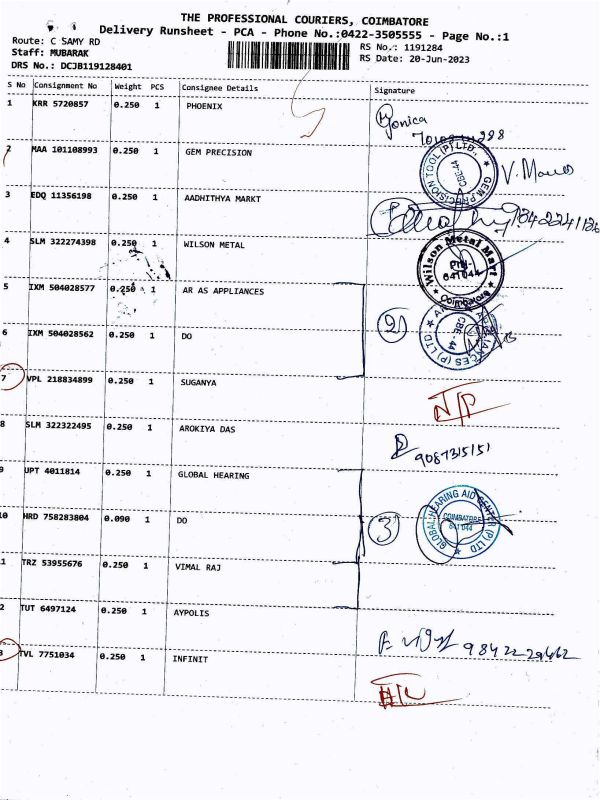 THE PROFESSIONAL COURIERS, COIMBATORE
Delivery Runsheet - PCA - Phone No.:0422-3505555 - Page No.:1
Route: C SAMY RD
Staff: MUBARAK
DRS No.: DCJB119128401
RS No.: 1191284
RS Date: 20-Jun-2023
S No Consignment No Weight PCS Consignee Details Signature
1 KRR 5720857 0.250 1 PHOENIX Monica
2 MAA 101108993 0.250 1 GEM PRECISION
GEM PRECISION TOOL (P) LTD CBE-44
3 EDQ 11356198 0.250 1 AADHITHYA MARKT 9342241126
4 SLM 322274398 0.250 1 WILSON METAL
Wilson Metal Mart PIN- 641044 Coimbatore
5 IXM 504028577 0.250 1 AR AS APPLIANCES
6 IXM 504028562 0.250 1 DO 2
APPLIANCES (P) LTD CBE-44
7 VPL 218834899 0.250 1 SUGANYA N/P
8 SLM 322322495 0.250 1 AROKIYA DAS 9087315151
9 UPT 4011814 0.250 1 GLOBAL HEARING
10 HRD 758283804 0.090 1 DO 3
GLOBAL HEARING AID CENTER (P) LTD COIMBATORE 641 044
1 TRZ 53955676 0.250 1 VIMAL RAJ
2 TUT 6497124 0.250 1 AYPOLIS
3 TVL 7751034 0.250 1 INFINIT